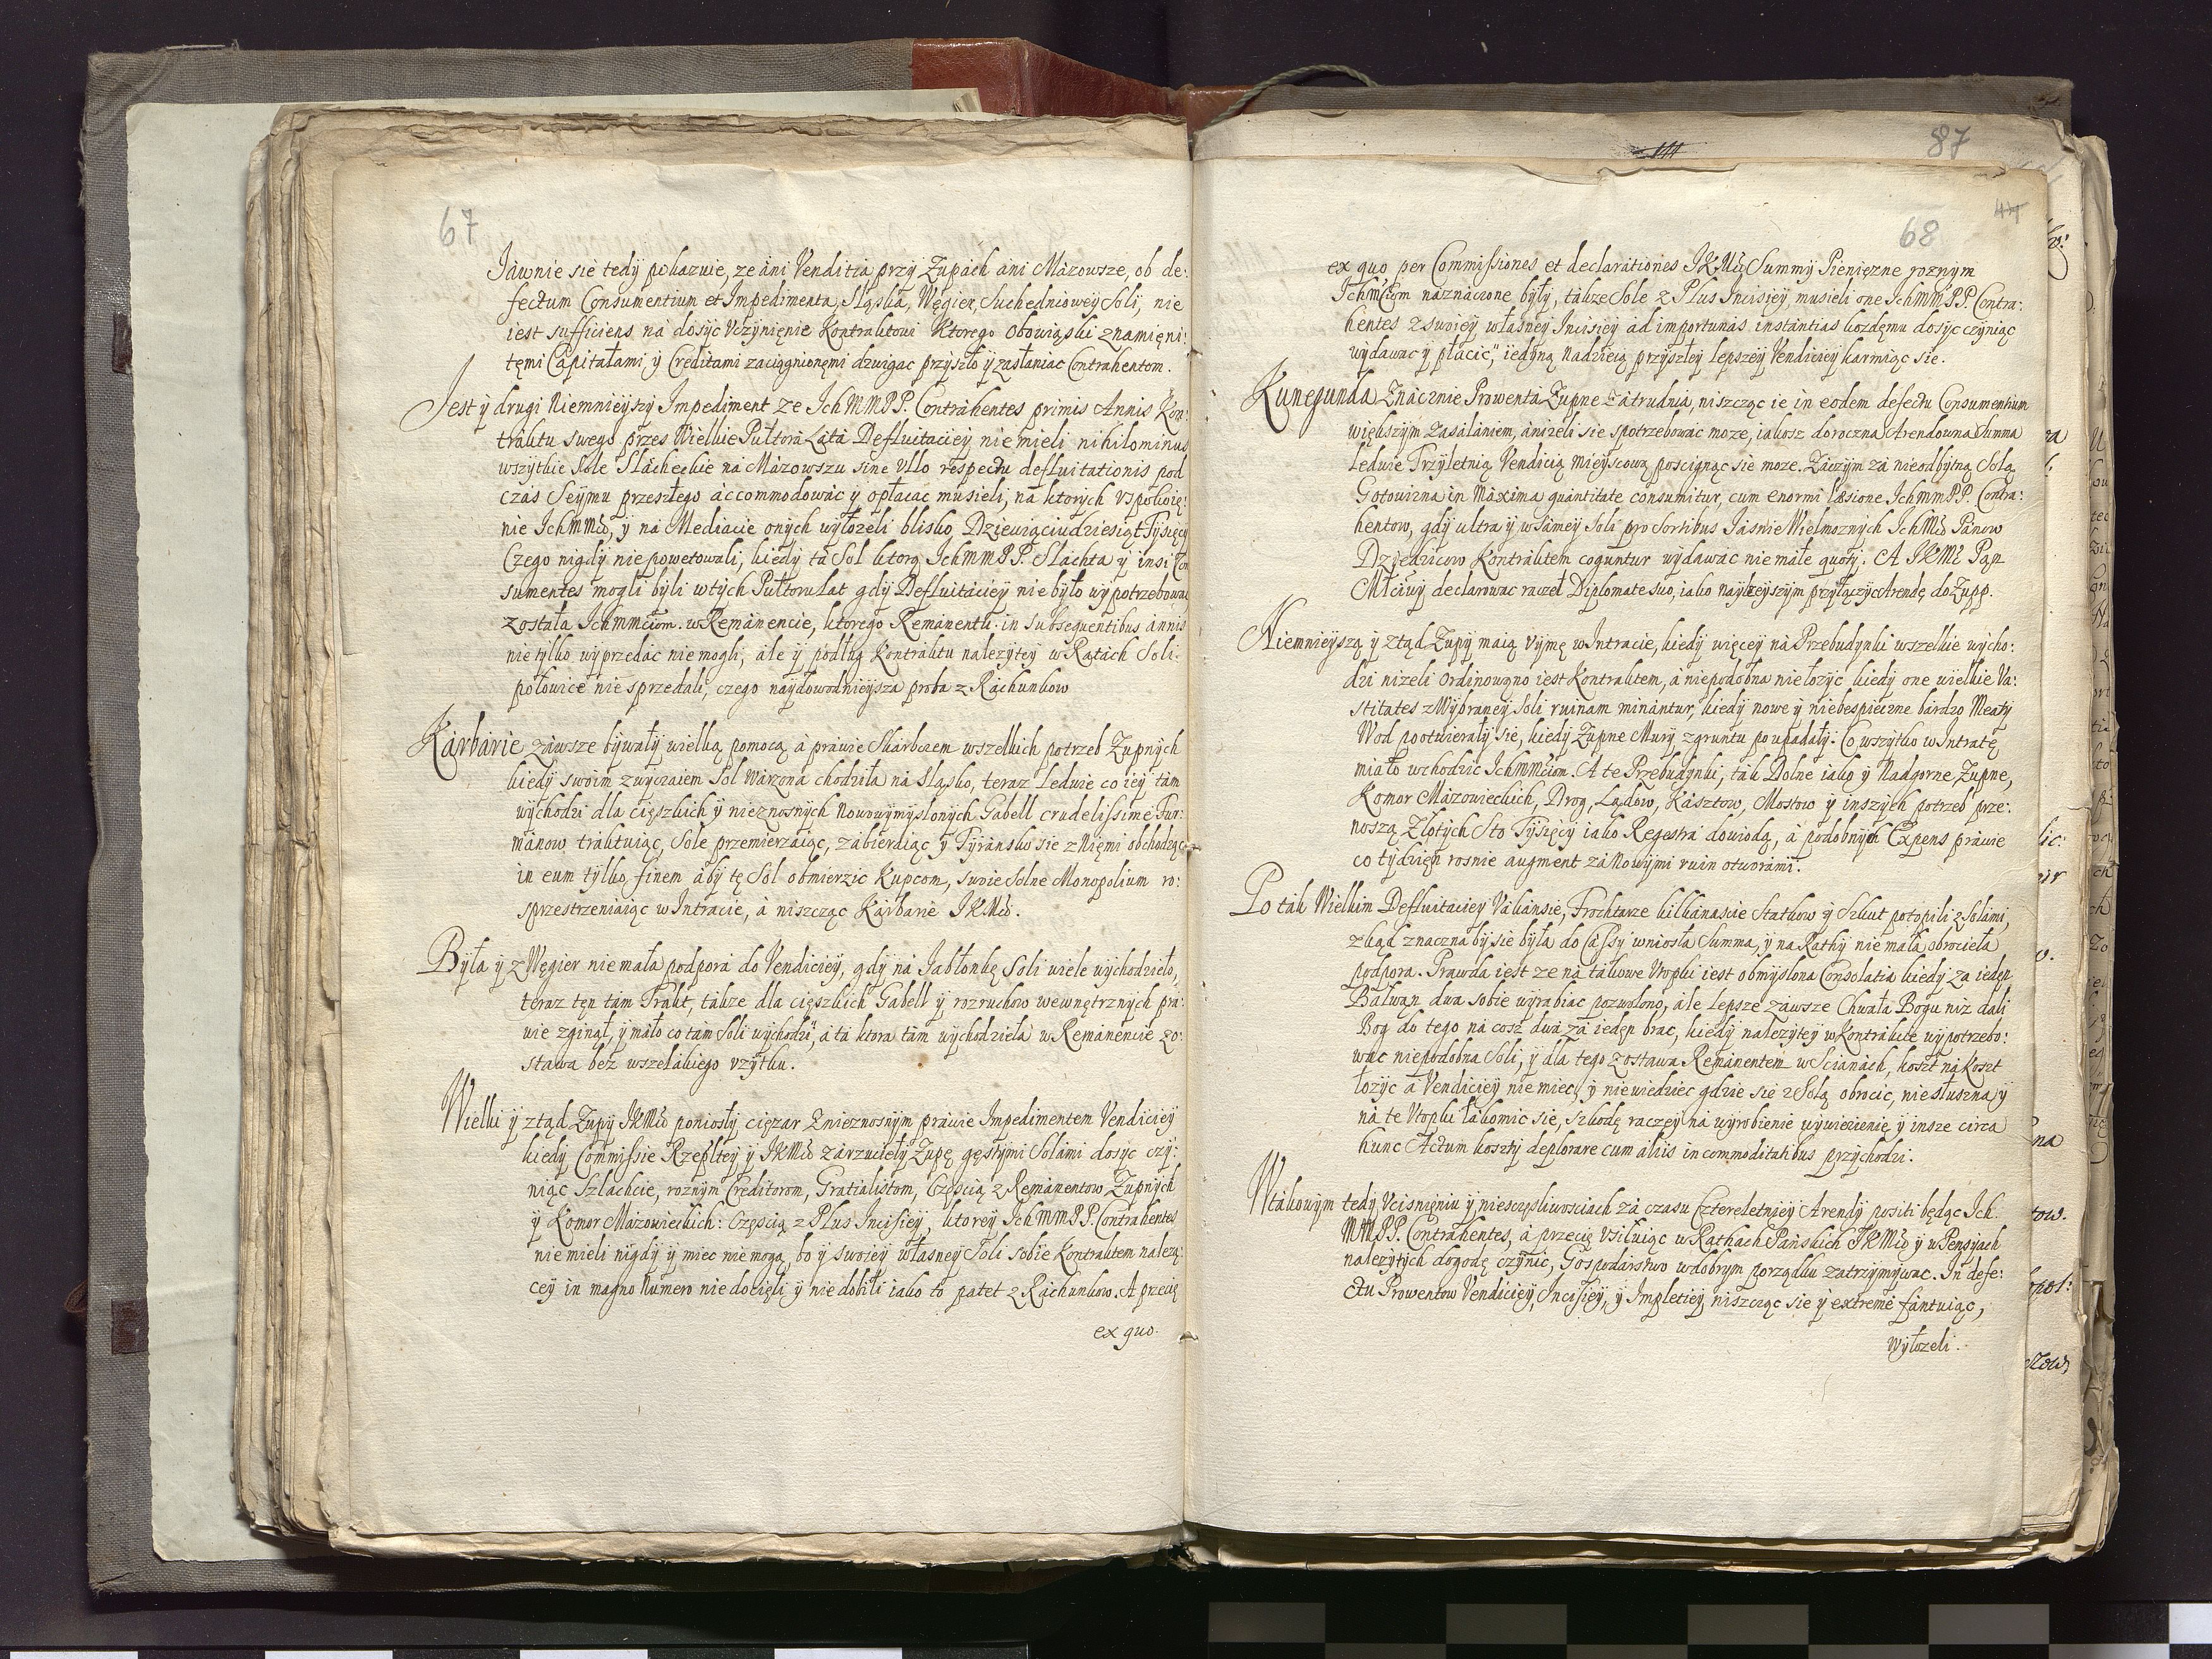 67
Jáwnie się tedy pokazuie, ze áni Venditia przy Zupách ani Mázowsze, ob de:
fectum Consumentium et Impedimenta, Sląska, Węgier, Suchedniowey Soli, nie
iest sufficiens ná dosyc vczynięnie Kontraktowi ktorego obowiąski znamięni:
tęmi Capitałami, y Creditami zaciągnionęmi dzwigac przyszło y zasłaniac Contrahentom.
Jest y drugi niemnieyszy Impediment ze IchMMPP. Contrahentes primis Annis Kon:
traktu swego przes Wielkie Pułtora Láta Defluitaciey nie mieli nihilominus
wszytkie Sole Sláchetkie ná Mázowszu sine vllo respectu defluitationis pod
czás Seymu przeszłego áccommodowác y opłacac musieli, ná ktorych vspokoię:
nie IchMMći, y ná Mediacie onych wyłozeli blisko Dziewiąciudziesiąt Tysięcy
Czego nigdy nie powetowali, kiedy tá Sol ktorą IchMMPP. Slachta y insi Con
sumentes mogli byli wtych Pułtorulat gdy Defluitáciey nie było wypotrzebowac
zostałá Ichmmciom. w Remánencie, ktorego Remánentu in Subsequentibus ánnis
nie tylko wyprzedác nie mogli, ále y podług Kontráktu nalezytey w Rátách Soli
połowice nie sprzedáli, czego naydowodnieysza proba z Ráchunkow
Kárbárie záwsze bywáły wielką pomocą, á práwie Skarbcem wszelkich potrzeb Zupnych
kiedy swoim zwyczaiem Sol Wárzona chodziłá ná Sląsko, teraz ledwie co iey tám
wychodzi dla cięszkich y nieznosnych nowowymyslonych Gabell crudelissime Fur:
mánow tráktuiąc, Sole przemierzáiąc, zábieráiąc y Tyránsko się z Nięmi obchodząc
in eum tylko finem áby tę Sol obmierzic Kupcom, swoie Solne Monopolium ro:
sprzestrzeniáiąc w Intracie, á niszcząc Kárbárie IKMći.
Była y z Węgier nie máła podporá do Vendiciey, gdy ná Jabłonkę Soli wiele wychodzieło,
teraz tęn tám Trákt, tákze dla cięszkich Gabell y rozruchow wewnętrznych prá:
wie zginął, y máło co tám Soli wychodzi, á tá ktora tám wychodzieła w Remánencie zo:
stawa bez wszelákiego vzytku.
Wielki y ztąd Zupy IKMći poniosły cięzar znieznosnym práwie Impedimentem Vendiciey
kiedy Commissie Rzepltey y IKMći zárzuciely Zupę gęstymi Solámi dosyc czy:
niąc Szlachcie, roznym Creditorom, Gratialistom, Częscią z Remánentow Zupnych
y Komor Mázowieckich: Częscią z Plus Incisiey, ktorey IchMMPP. Contrahentes
nie mieli nigdy y miec nie mogą, bo y swoiey własney Soli sobie Kontraktem nalezą:
cey in magno Numero nie docięli y nie dobili iáko to patet z Ráchunkow. A przecię
ex quo.
87
44
68
ex quo per Commissiones et declarátiones IKMći Summy Pienięzne roznym
Ichmciom náznáczone były, tákze Sole z Plus Incisiey, musieli one IchMMPP. Contra:
hentes z swoiey własney Incisiey ád importunás instántias kozdęmu dosyc czyniąc
wydawac y płacic, iedyną nadzieią przyszłey lepszey Vendiciey karmiąc się.
Kunegunda Znácznie Prowentá Zupne zátrudnia, niszcząc ie in eodem defectu Consumentium
większym zasálániem, ániżeli się spotrzebowác moze, iákosz doroczna Arendowna Summa
ledwie Trzyletnią Vendicią mieyscową poscignąc się moze. Záczym zá nieodbytną Solą
Gotowizna in Máxima quántitate consumitur, cum enormi læsione IchmmPP. Contra:
hentow, gdy ultra y w sámey Soli pro Sortibus Jásnie Wielmoznych IchMći Pánow
Dziedzicow Kontraktem coguntur wydawác nie małe quoty. A IKMć Pąn
Młciwy declarowac raczeł Diplomate suo, iako nayprzyszym przyłączyc Arendę do Zupp.
Niemnieyszą y ztąd Zupy maią vymę w Intracie, kiedy więcey ná Przebudynki wszelkie wycho:
dzi nizeli Ordinowąno iest Kontraktem, á niepodobna nie łozyc kiedy one wielkie Va:
stitates z Wybraney Soli ruinam minántur, kiedy nowe y niebespieczne bárdzo Meaty
Wod pootwierały się, kiedy Zupne Mury z gruntu poupadały: Co wszytko w Intratę
miáło wchodzic Ichmmciom. A te Przebudynki, ták Dolne iáko y Nadgorne, Zupne,
Komor Mázowieckich, Drog, Lądow, Kásztow, Mostow y inszych potrzeb prze:
noszą Złotych Sto Tysięcy iáko Regestrá dowiodą, á podobnych Expens práwie
co tydzięn rosnie augment zá Nowymi ruin otworámi.
Po ták Wielkim Defluitaciey Vákánsie, Frochtarze kilkánascie Statkow y Szkut potopili z Solámi,
zkąd znaczna by się była do Cassy wniosła Summa, y na Rathy nie máła obrociełá
podpora. Prawda iest ze ná tákowe Vtopki iest obmyslona Consolatia kiedy za iedęn
Báłwąn dwa sobie wyrabiac pozwolono, ále lepsze záwsze Chwałá Bogu niz dáli
Bog do tego ná cosz dwá zá iedęn brac, kiedy nalezytey w Kontrákcie wypotrzebo:
wac niepodobna Soli, y dla tego zostawa Remánentem w Scianách, koszt ná koszt
łozyc á Vendiciey nie miec, y nie wiedziec gdzie się z Solą obrocic, nie słuszna y
ná te Vtopki łákomic się, szkodę raczey ná wyrobienie wywiezienię y insze circa
hunc Actum koszty deplorare cum aliis incommoditatibus przychodzi.
Wtákowym tedy Vcisnięniu y niesczęsliwosciách zá czasu Cztereletniey Arendy positi będąc Ich
MMPP. Contrahentes, á przecię Vsiłuiąc w Rathach Páńskich IKMći y w Pensyach
nalezytych dogodę czynic, Gospodarstwo w dobrym porządku zatrzymywac. In defe:
ctu Prowentow Vendiciey, Incisiey, y Impletiey niszcząc się y extremè fántuiąc,
wyłozeli.